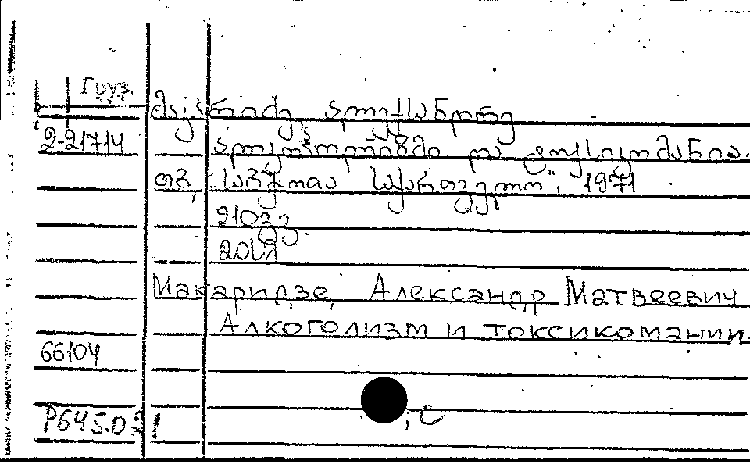 Груз.
მაკარიძე ალექსანდრე
2-21714 ალკოჰოლიზმი და ტოქსიკომანია.
თბ., "საბჭოთა საქართველო", 1971
210 გვ.
Макаридзе, Александр Матвеевич
Алкоголизм и токсикомании.
66104
Р645.021